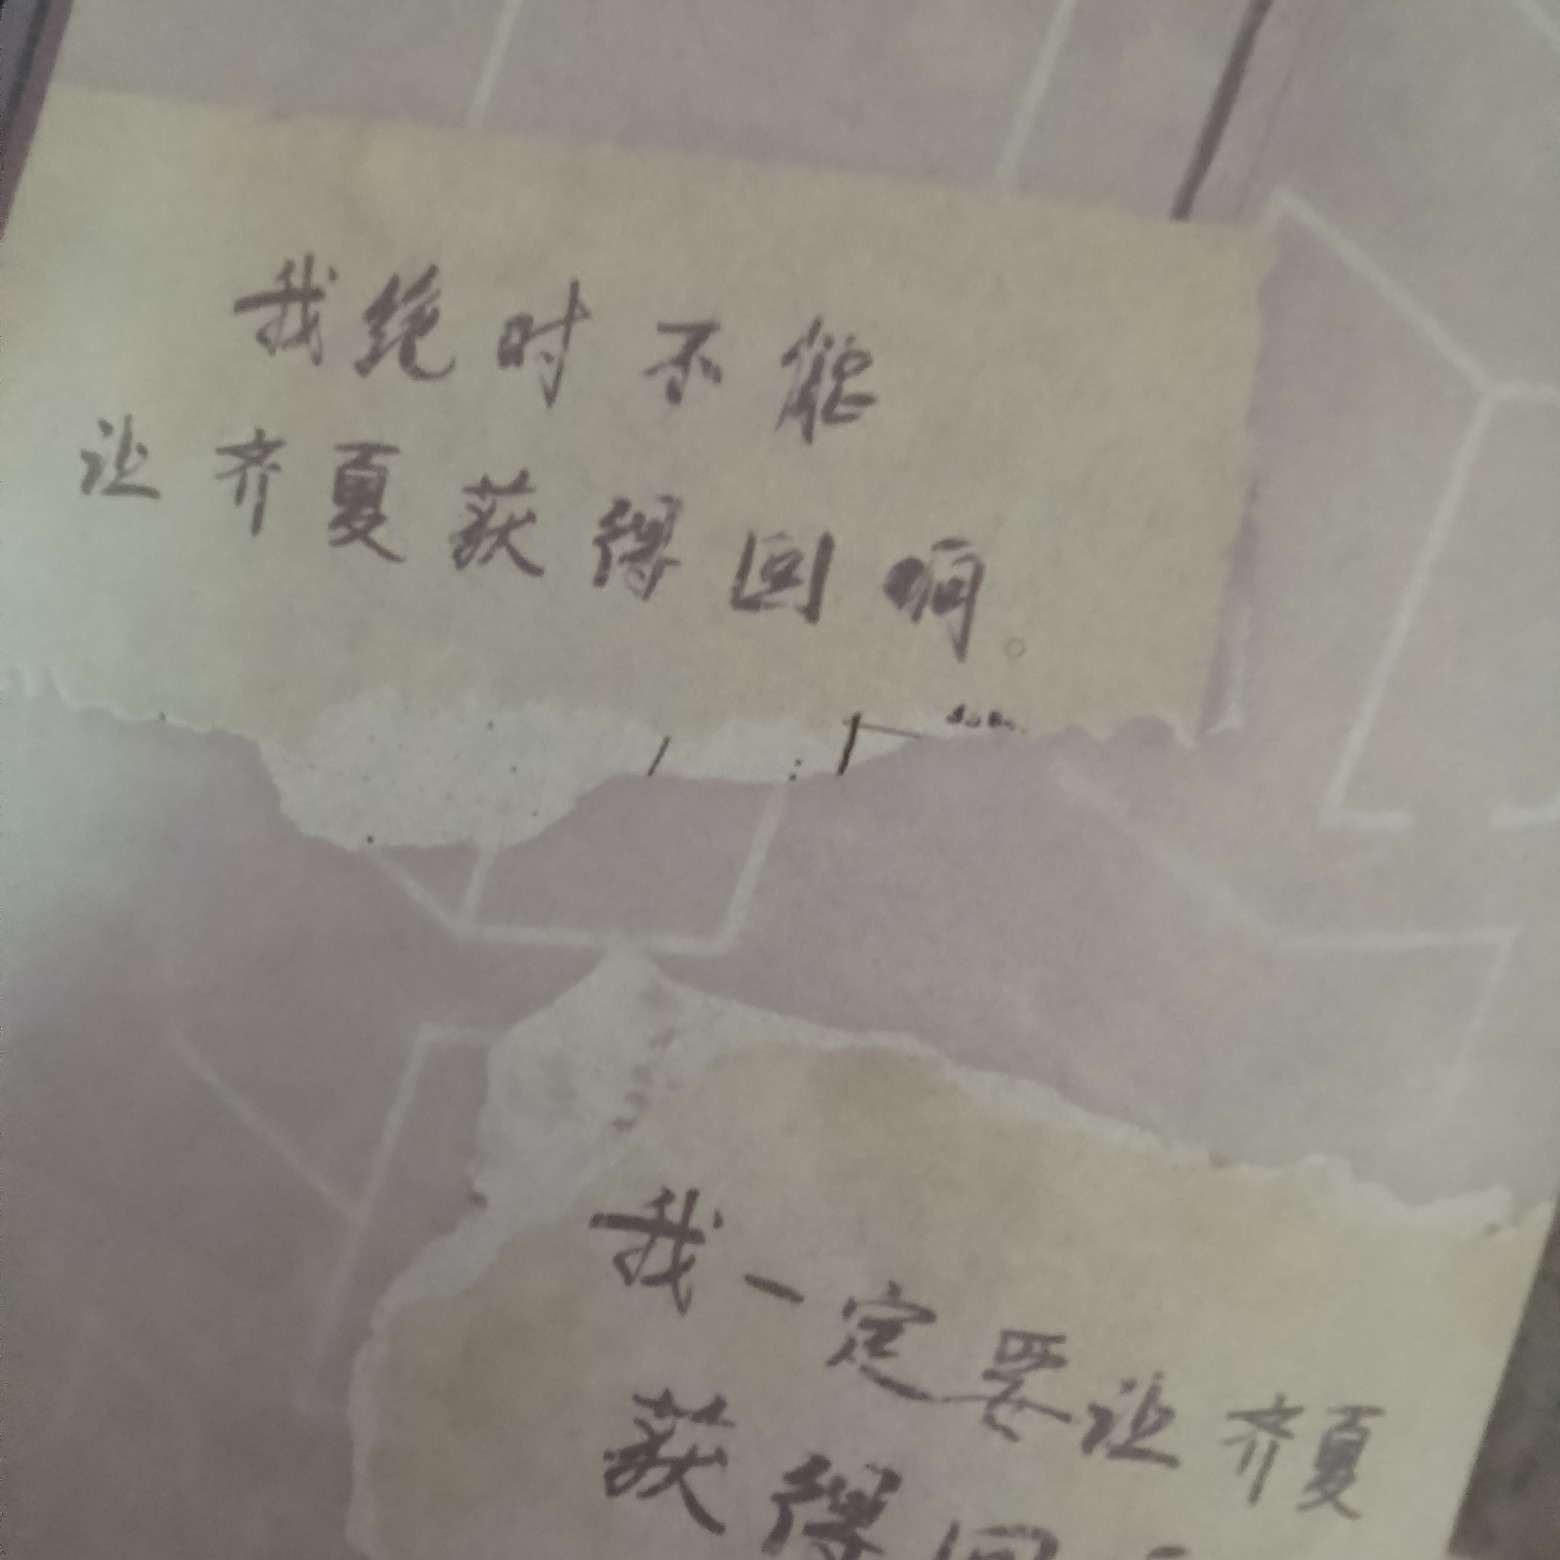 我绝对不能
让齐夏获得回响。
我一定要让齐夏
获得回